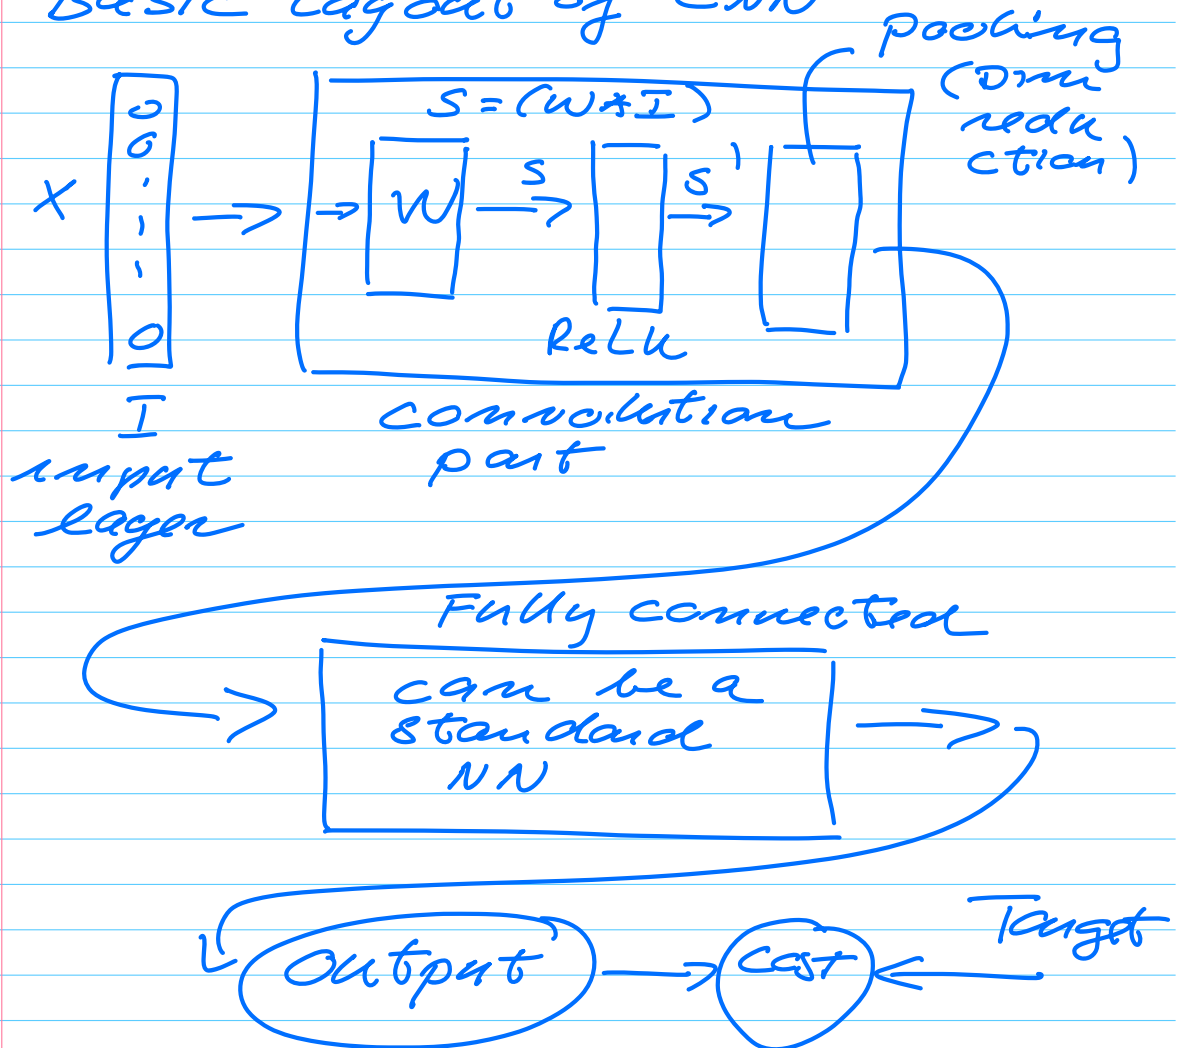 Basic Layout of CNN
pooling
(Dim
redu
ction)
S = (W * I)
X
W
S
S'
ReLU
I
input
layer
convolution
part
Fully connected
can be a
standard
NN
Target
Output
Cost